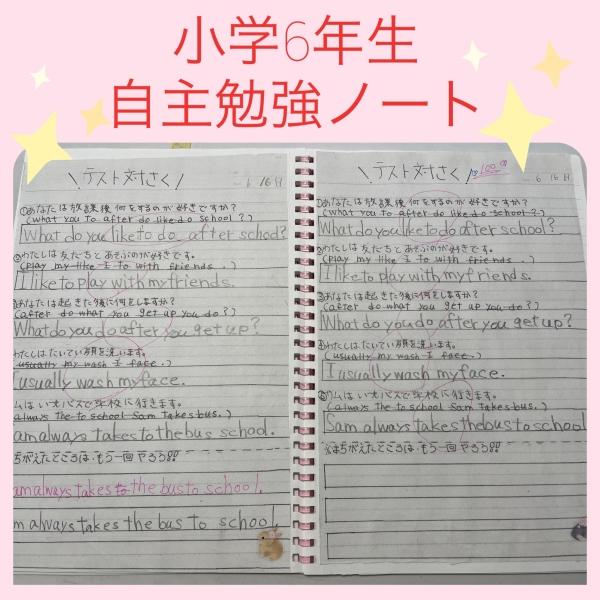 小学6年生
自主勉強ノート
\テスト対さく/
6 16日
①あなたは放課後何をするのが好きですか?
(what you to after do like do school?)
What do you like to do after school?
②わたしは友だちとあそぶのが好きです。
(play my like I to with friends.)
I like to play with my friends.
③あなたは起きた後に何をしますか?
(after do what you get up you do?)
What do you do after you get up?
わたしはたいてい顔を洗います。
usually my wash I face.)
I usually wash my face.
ムはいつもバスで学校に行きます。
always the to school Sam takes bus.)
am always takes to the bus school.
ちがえたところは、もう一回やろう!!
am always takes to the bus to school.
m always takes the bus to school.
\テスト対さく/ 100点
6 16日
①あなたは放課後何をするのが好きですか?
(what you to after do like do school?)
What do you like to do after school?
②わたしは友だちとあそぶのが好きです。
(play my like I to with friends.)
I like to play with my friends.
③あなたは起きた後に何をしますか?
(after do what you get up you do?)
What do you do after you get up?
④わたしはたいてい顔を洗います。
(usually my wash I face.)
I usually wash my face.
⑤サムはいつもバスで学校に行きます。
(always the to school Sam takes bus.)
Sam always takes the bus to school
※まちがえたところは、もう一回やろう!!